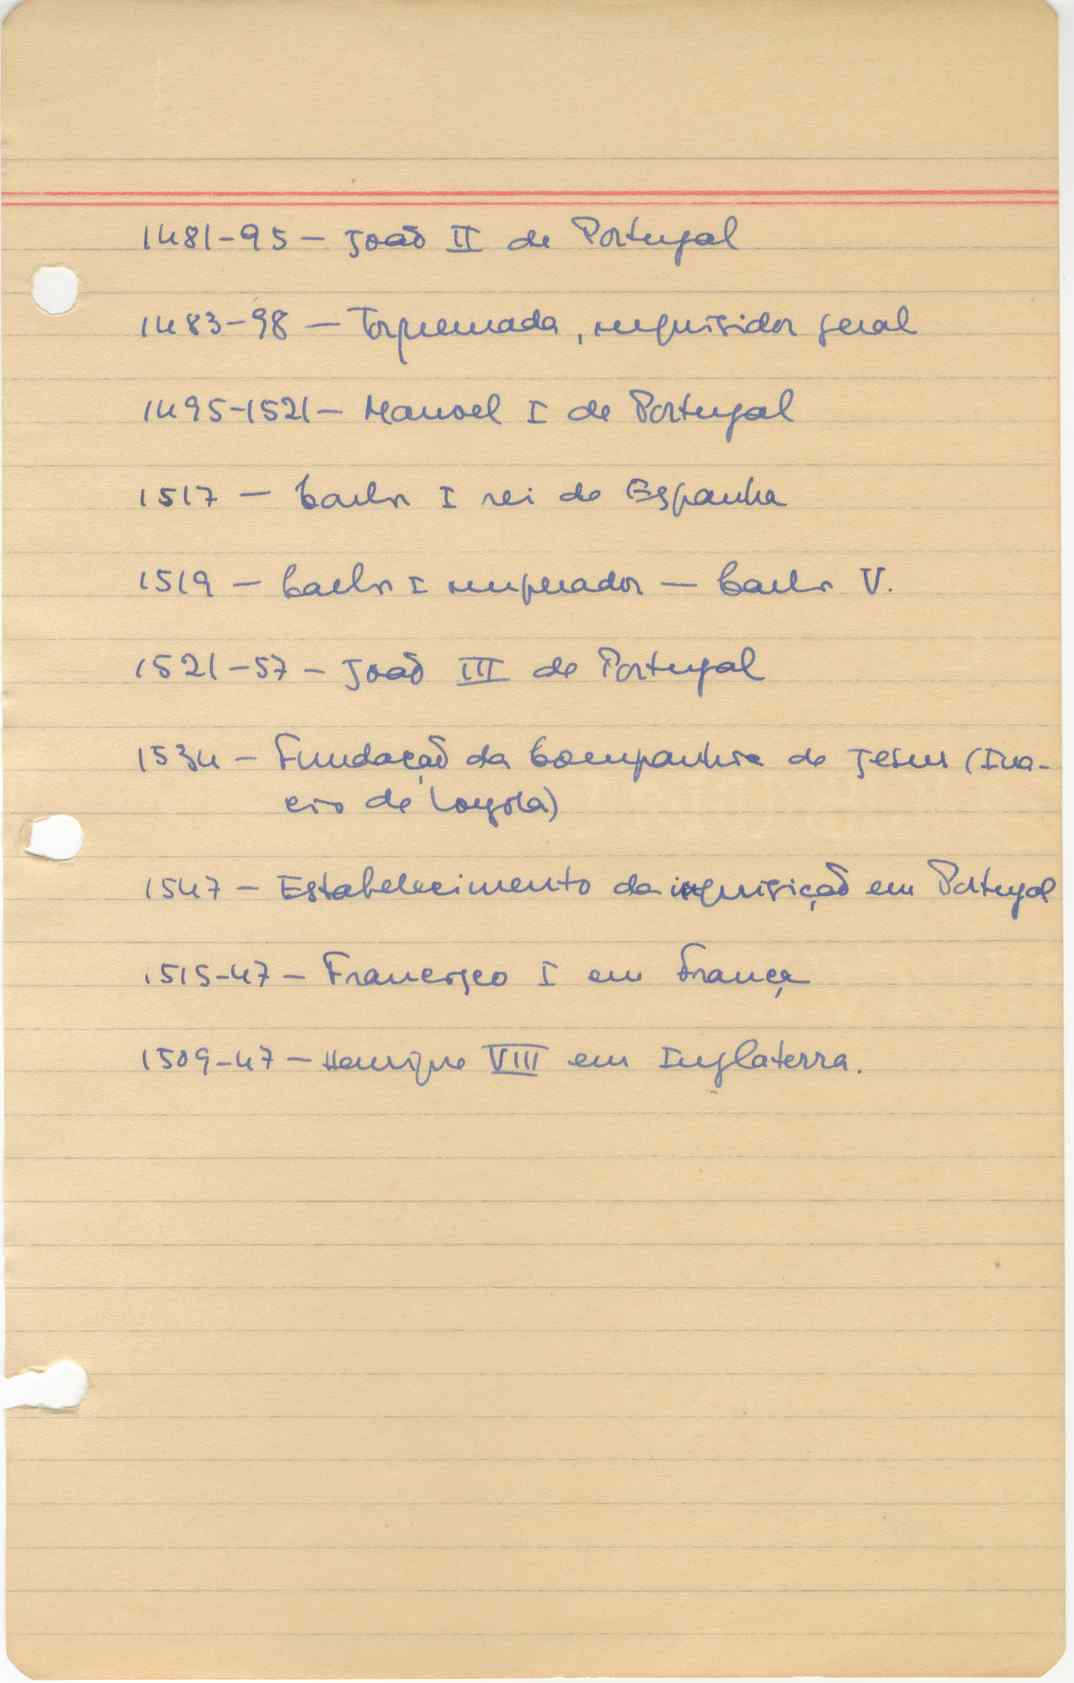 1481-95 - João II de Portugal
1483-98 - Torquemada, inquisidor geral
1495-1521 - Manoel I de Portugal
1517 - Carlos I rei de Espanha
1519 - Carlos I imperador - Carlos V.
1521-57 - João III de Portugal
1534 - Fundação da Companhia de Jesus (Iná-
cio de Loyola)
1547 - Estabelecimento da inquisição em Portugal
1515-47 - Francisco I em França
1509-47 - Henrique VIII em Inglaterra.